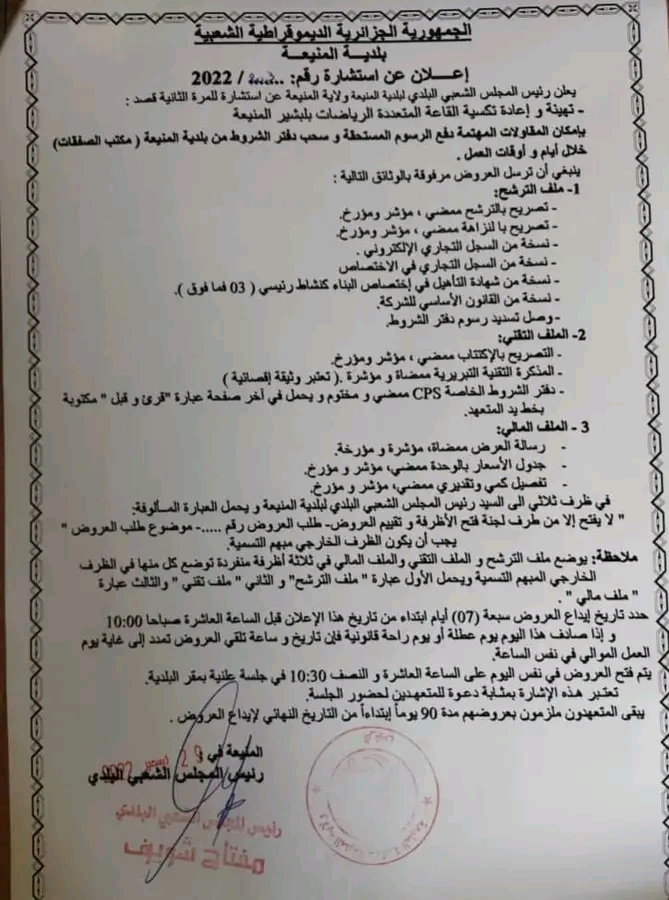 الجمهورية الجزائرية الديموقراطية الشعبية
بلديـة المنيعـة
إعـلان عن استشارة رقم: / 2022
يعلن رئيس المجلس الشعبي البلدي لبلدية المنيعة ولاية المنيعة عن استشارة للمرة الثانية قصد :
- تهيئة و إعادة تكسية القاعة المتعددة الرياضات بلبشير المنيعة
بإمكان المقاولات المهتمة دفع الرسوم المستحقة و سحب دفتر الشروط من بلدية المنيعة ( مكتب الصفقات)
خلال أيام و أوقات العمل .
ينبغي أن ترسل العروض مرفوقة بالوثائق التالية :
1- ملف الترشح:
- تصريح بالترشح ممضي ، مؤشر ومؤرخ.
- تصريح با لنزاهة ممضي ، مؤشر ومؤرخ.
- نسخة من السجل التجاري الإلكتروني .
- نسخة من السجل التجاري في الاختصاص
- نسخة من شهادة التأهيل في إختصاص البناء كنشاط رئيسي ( 03 فما فوق ).
- نسخة من القانون الأساسي للشركة.
- وصل تسديد رسوم دفتر الشروط.
2- الملف التقني:
- التصريح بالإكتتاب ممضي ، مؤشر ومؤرخ.
- المذكرة التقنية التبريرية ممضاة و مؤشرة .( تعتبر وثيقة إقصائية )
- دفتر الشروط الخاصة CPS ممضي و مختوم و يحمل في آخر صفحة عبارة "قرئ و قبل " مكتوبة
بخط يد المتعهد.
3 - الملف المالي:
- رسالة العرض ممضاة، مؤشرة و مؤرخة.
- جدول الأسعار بالوحدة ممضي، مؤشر و مؤرخ.
- تفصيل كمي وتقديري ممضي، مؤشر و مؤرخ.
في ظرف ثلاثي الى السيد رئيس المجلس الشعبي البلدي لبلدية المنيعة و يحمل العبارة المـألوفة:
" لا يفتح إلا من طرف لجنة فتح الأظرفة و تقييم العروض- طلب العروض رقم .....- موضوع طلب العروض "
يجب أن يكون الظرف الخارجي مبهم التسمية.
ملاحظة: يوضع ملف الترشح و الملف التقني والملف المالي في ثلاثة أظرفة منفردة توضع كل منها في الظرف
الخارجي المبهم التسمية ويحمل الأول عبارة " ملف الترشح" و الثاني " ملف تقني " والثالث عبارة
" ملف مالي " .
حدد تاريخ إيداع العروض سبعة (07) أيام ابتداء من تاريخ هذا الإعلان قبل الساعة العاشرة صباحا 10:00
و إذا صادف هذا اليوم يوم عطلة أو يوم راحة قانونية فإن تاريخ و ساعة تلقي العروض تمدد إلى غاية يوم
العمل الموالي في نفس الساعة.
يتم فتح العروض في نفس اليوم على الساعة العاشرة و النصف 10:30 في جلسة علنية بمقر البلدية.
تعتبر هذه الإشارة بمثابة دعوة للمتعهدين لحضور الجلسة.
يبقى المتعهدون ملزمون بعروضهم مدة 90 يوماً إبتداءاً من التاريخ النهائي لإيداع العروض .
المنيعة في 29 ديسمبر 2022
رئيس المجلس الشعبي البلدي
رئيس المجلس الشعبي البلدي
مفتاح شريف